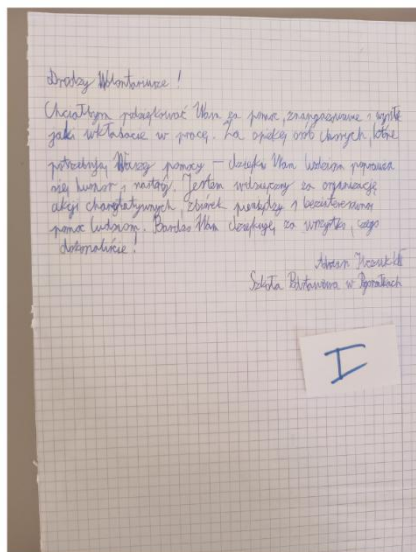 Drodzy Wolontariusze!
Chciałbym podziękować Wam za pomoc, zaangażowanie i wysiłek
jaki wkładacie w pracę. Za opiekę osób chorych, które
potrzebują Waszej pomocy – dzięki Wam ludziom poprawia
się humor i nastrój. Jestem wdzięczny za organizację
akcji charytatywnych, zbiórek pieniędzy i bezinteresowną
pomoc ludziom. Bardzo Wam dziękuję za wszystko, czego
dokonaliście!
Adrian
Szkoła Podstawowa w
I